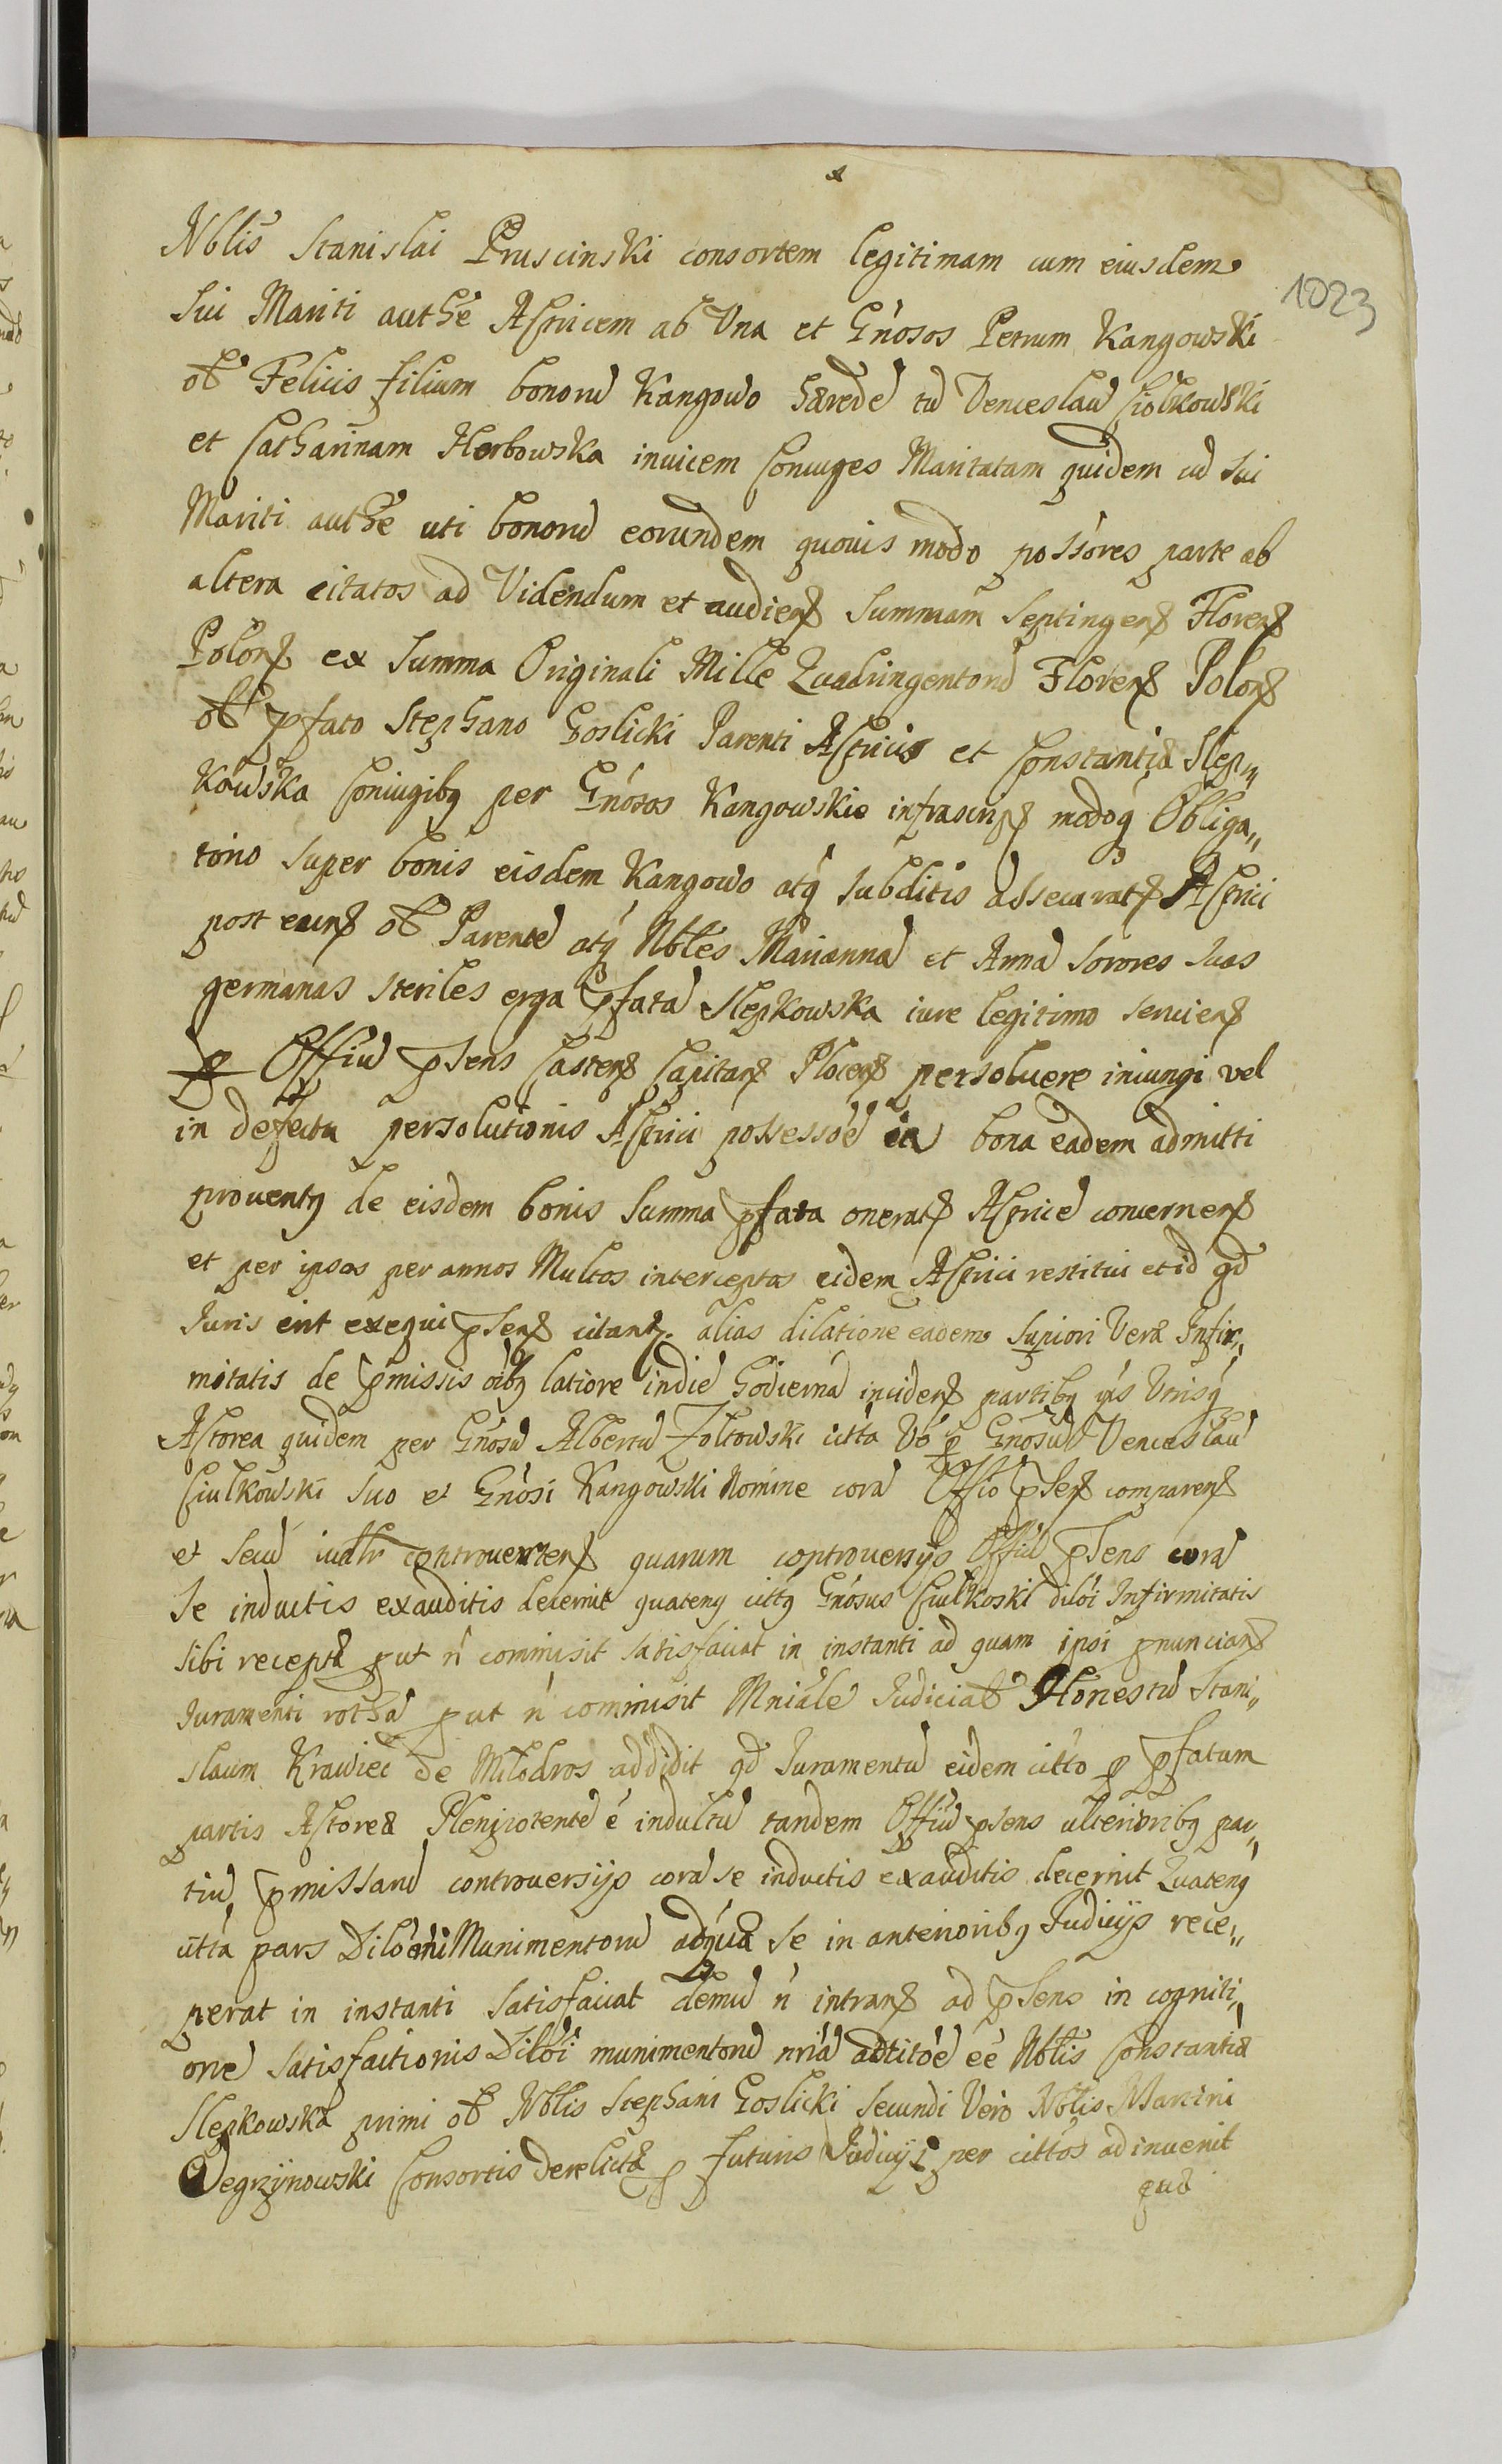 1023
Nblis Stanislai Pruscinski consortem legitimam cum eiusdem
sui Mariti authe Actricem ab Una et Gnosos Petrum Kangowski
ol Felicis filium bonoru Kangowo hærede tu Venceslau Ciolkowski
et Catharinam Herbowska inuicem Coniuges Maritatam quidem cu sui
Mariti authe uti bonoru eorundem quouis modo possores parte ab
altera citatos ad Videndum et audien Summam Septingen Floren
Polon ex Summa Originali Mille Quadringentoru Floren Polon
ol pfato Stephano Goslicki Parenti Actricis et Constantiæ Slep„
kowska Coniugibq per Gnosos Kangowskie infrascrip modoq Obliga„
torio super bonis eisdem Kangowo atq subditis assecurat Actrici
post eius ol Parente atq Nbles Marianna et Anna Sorores suas
germanas steriles erga pfata Slepkowska iure legitimo seruien
p Offiu psens Castren Capitan Plocen persoluere iniungi vel
in defectu persolutionis Actrici possessoe in bona eadem admitti
prouentq de eisdem bonis Summa pfata onerat Actrice concernen
et per ipsos per annos Multos interceptos eidem Actrici restitui et id qd
Iuris erit exequi psen citant. alias dilatione eadem Supiori Veræ Infir„
mitatis de pmissis oibq latiore indie hodierna inciden partibq ijs Vtrisq
Actorea quidem per Gnosu Albertu Zoltowski citta Vo p Gnosu Venceslau
Ciulkowski suo et Gnosi Kangowski Nomine cora Offio psen comparen
et secu iudlr controuerten quarum controuersijs Offiu psens cora
se inductis exauditis decernit quatenq cittq Gnosus Ciulkoski diloi Infirmitatis
sibi receptæ put n commisit satisfaciat in instanti ad quam ipsi pnuncian
Iuramenti rotha put n commisit Mniale Iudicial Honestu Stani„
slaum Krawiec de Milodros addidit qd Iuramentu eidem citto p pfatum
partis Actoreæ Plenipotente e indultu tandem Offiu psens ulterioribq par„
tiu pmissaru controuersijs cora se inductis exauditis decernit Quatenq
citta pars Diloni Munimentoru adqua se in anterioribq Iudicijs rece„
perat in instanti satisfaciat demu n intran ad psens in cogniti„
one satisfactionis Diloi munimentoru nria adcitoe ee Nblis Constantiæ
Slepkowska primi ol Nblis Stephani Goslicki Secundi Vero Nblis Martini
Degrzynowski Consortis derelictæ p futuris Iudicijs per cittos adinuenit
quæ